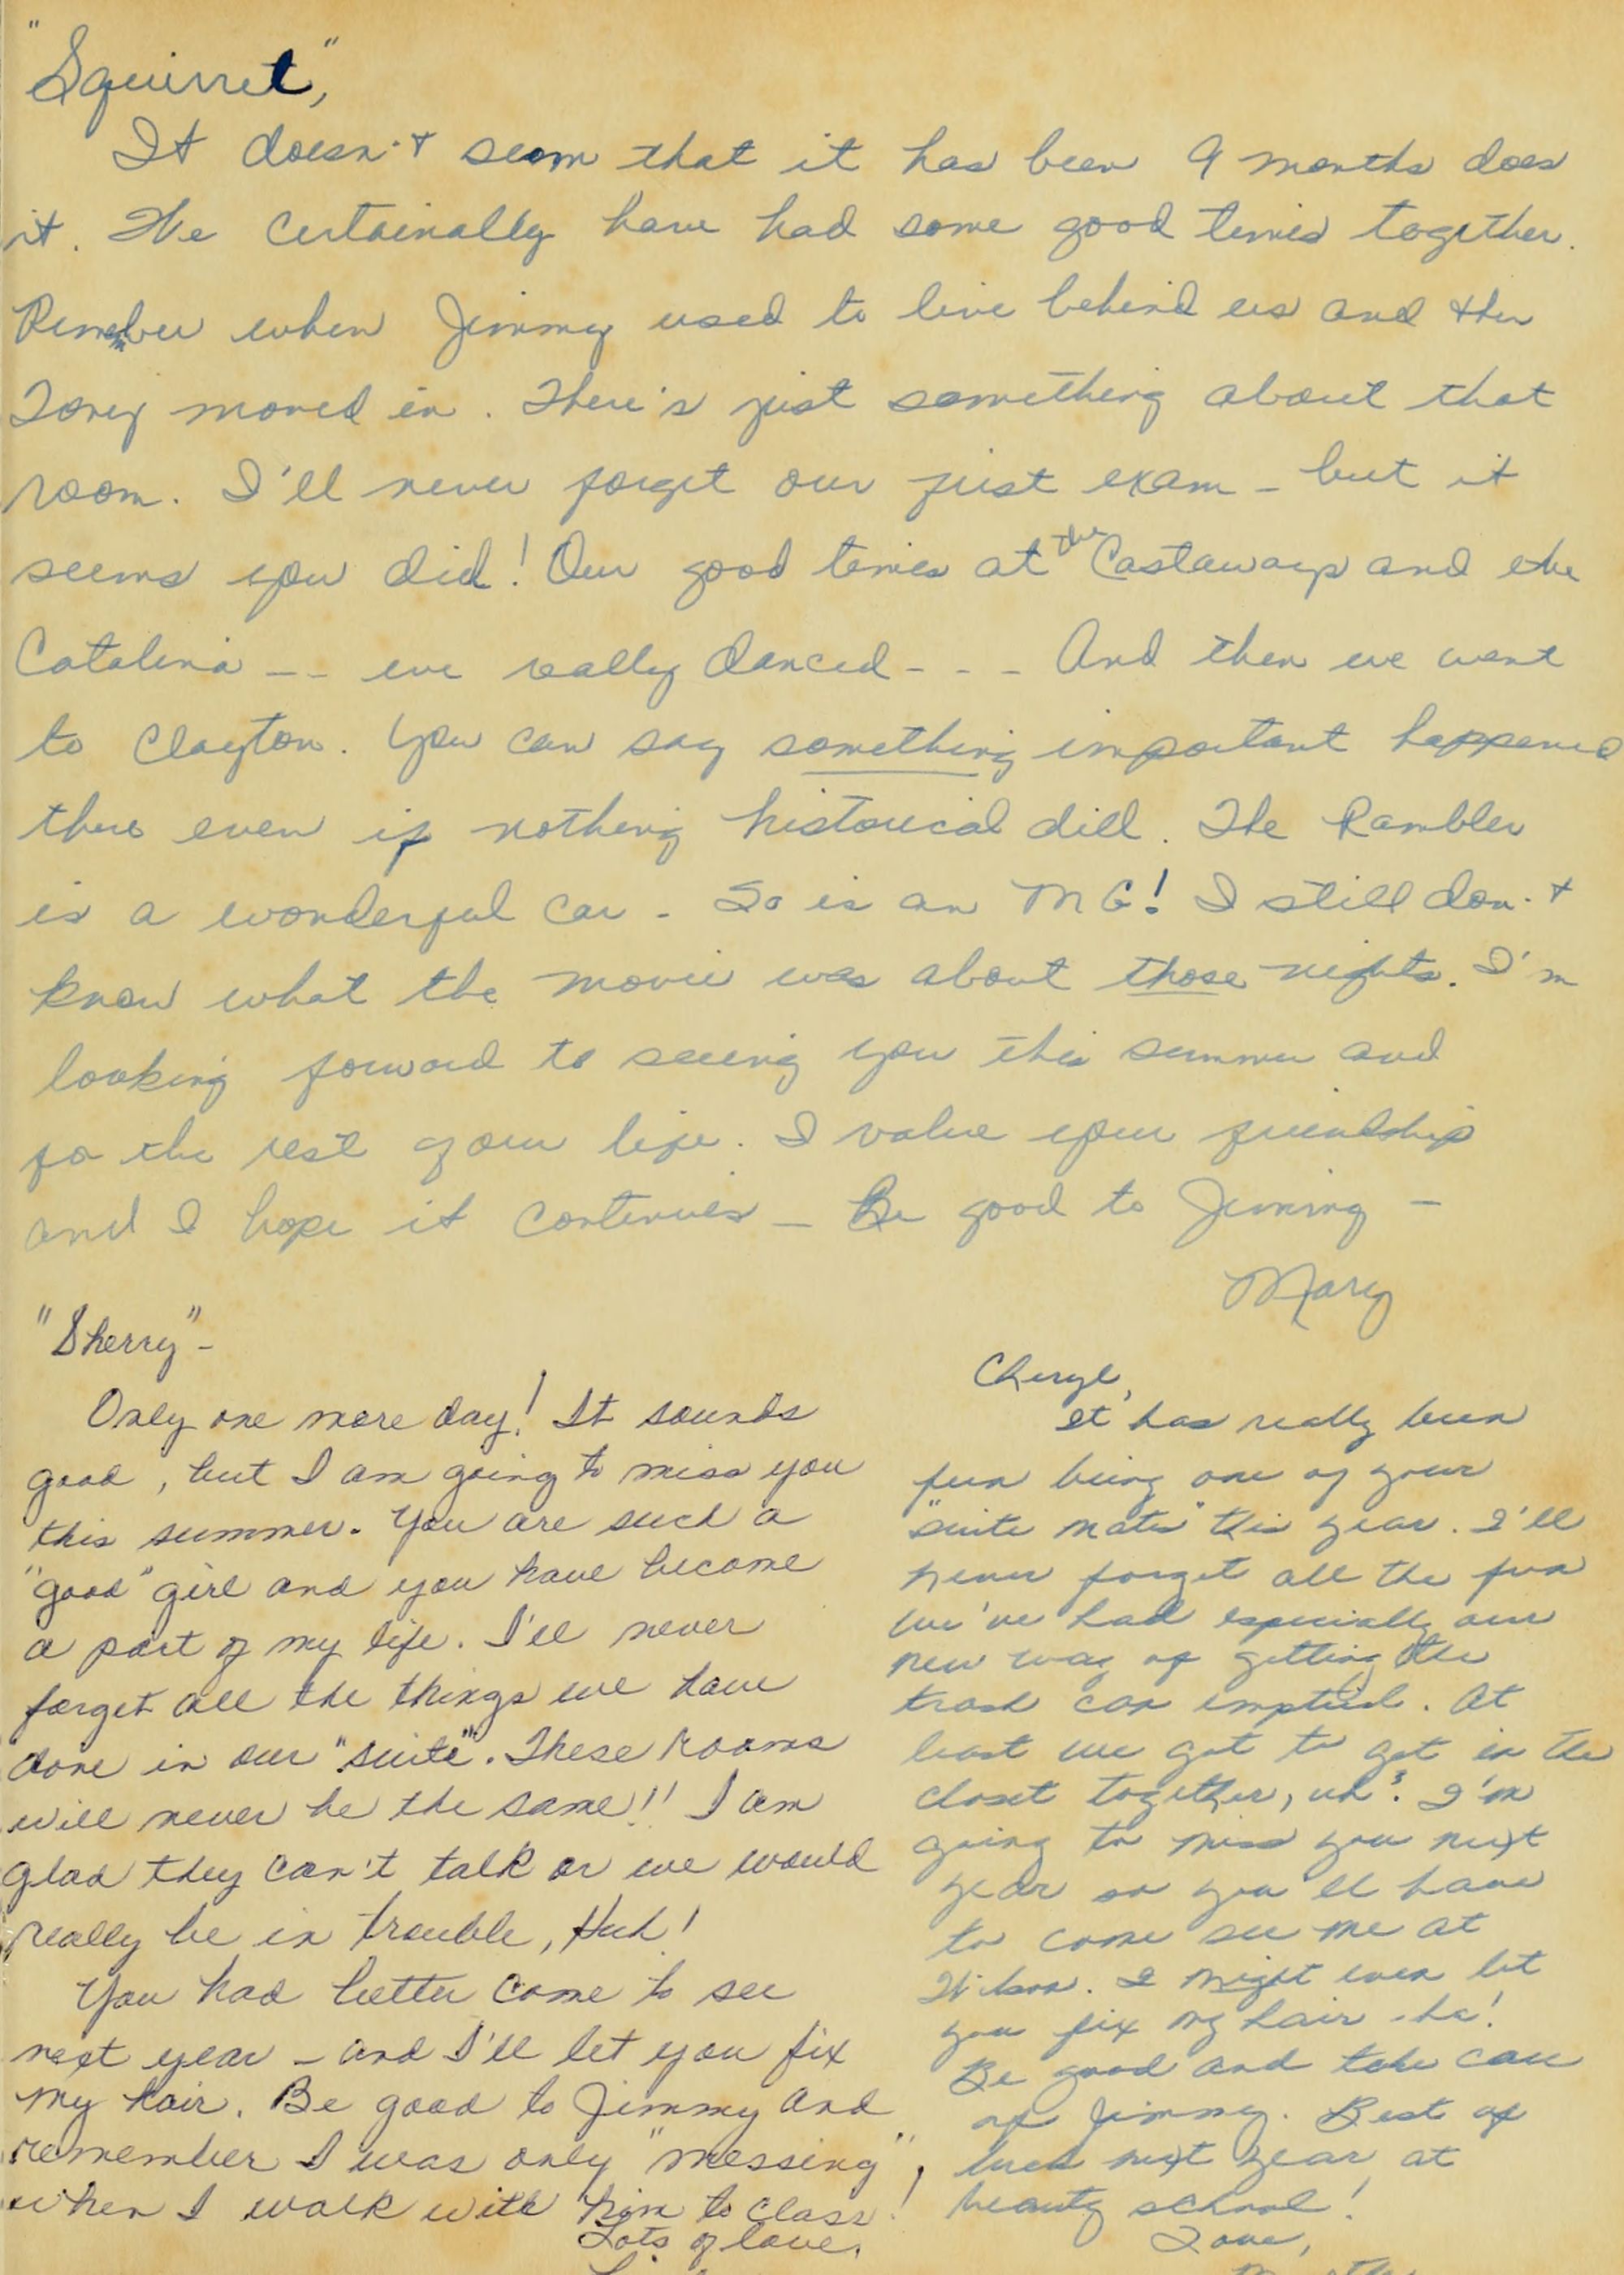 "Squirret,"
It doesn't seem that it has been 9 months does
it. We certainally have had some good times together.
Remember when Jimmy used to live behind us and then
Toney moved in. There's just something about that
room. I'll never forget our first exam - but it
seems you did! Our good times at the Castaways and the
Catalina -- we really danced --- And then we went
to Clayton. You can say something important happened
there even if nothing historical dill. The Rambler
is a wonderful car - So is an MG! I still don't
know what the movie was about those nights. I'm
looking forward to seeing you this summer and
for the rest of our life. I value your friendship
and I hope it continues - Be good to Jimmy -
Mary
"Sherry" -
Only one more day! It sounds
good, but I am going to miss you
this summer. You are such a
"good" girl and you have become
a part of my life. I'll never
forget all the things we have
done in our "suite". These rooms
will never be the same!! I am
glad they can't talk or we would
really be in trouble, Huh!
You had better come to see
next year - and I'll let you fix
my hair. Be good to Jimmy and
remember I was only "messing",
when I walk with him to class!
Lots of love,
Cheryl,
It has really been
fun being one of your
"suite mates" this year. I'll
never forget all the fun
we've had especially our
new way of getting the
trash can emptied. At
least we got to get in the
closet together, uh? I'm
going to miss you next
year so you'll have
to come see me at
Wilson. I might even let
you fix my hair - ha!
Be good and take care
of Jimmy. Best of
luck next year at
beauty school!
Love,